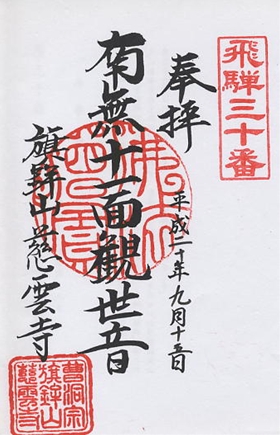 飛騨三十番
奉拝
平成二十年九月十五日
南無十一面觀世音
旗鉾山慈雲寺
曹洞宗
旗鉾山
慈雲寺